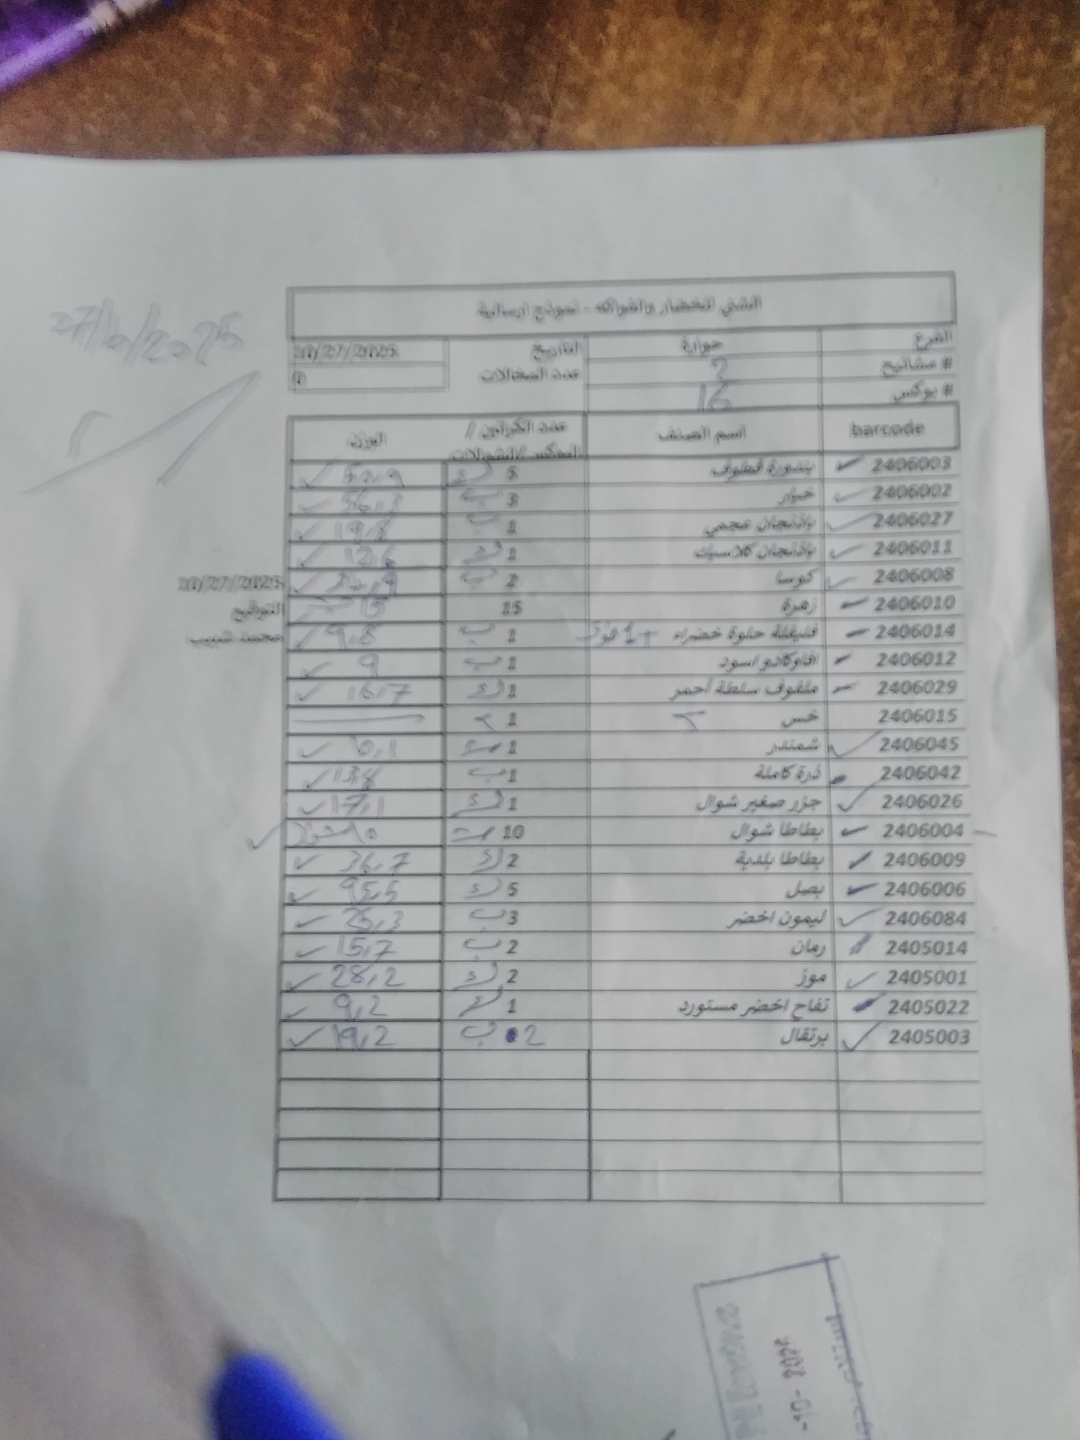 الشني للخضار والفواكه - نموذج ارسالية
الفرع حوارة التاريخ 10/27/2025
# مشاتيح 2 عدد المخالات 0
# بوكس 16
27/10/2025
barcode اسم الصنف عدد الكراتين // البكس//الشوالات الوزن
2406003 بندورة قطوف 5
2406002 خيار 3 ب 56,3
2406027 باذنجان عجمي 1 ب 19,8
2406011 باذنجان كلاسيك 1 ك 12,6
2406008 كوسا 2 ب 10/27/2025
2406010 زهرة 15 15 التوقيع
2406014 فليفلة حلوة خضراء 1 ب 9,8 محمد شبيب
2406012 افاوكادو اسود 1 ب 9
2406029 ملفوف سلطة أحمر 1 ك 16,7
2406015 خس 1
2406045 شمندر 1 6,1
2406042 ذرة كاملة 1 ب 13,8
2406026 جزر صغير شوال 1 ك 17,1
2406004 بطاطا شوال 10
2406009 بطاطا بلدية 2 ك 36,7
2406006 بصل 5 ك 95,5
2406084 ليمون اخضر 3 ب 25,3
2405014 رمان 2 ب 15,7
2405001 موز 2 ك 28,2
2405022 تفاح اخضر مستورد 1 9,2
2405003 برتقال 2 ب 19,2